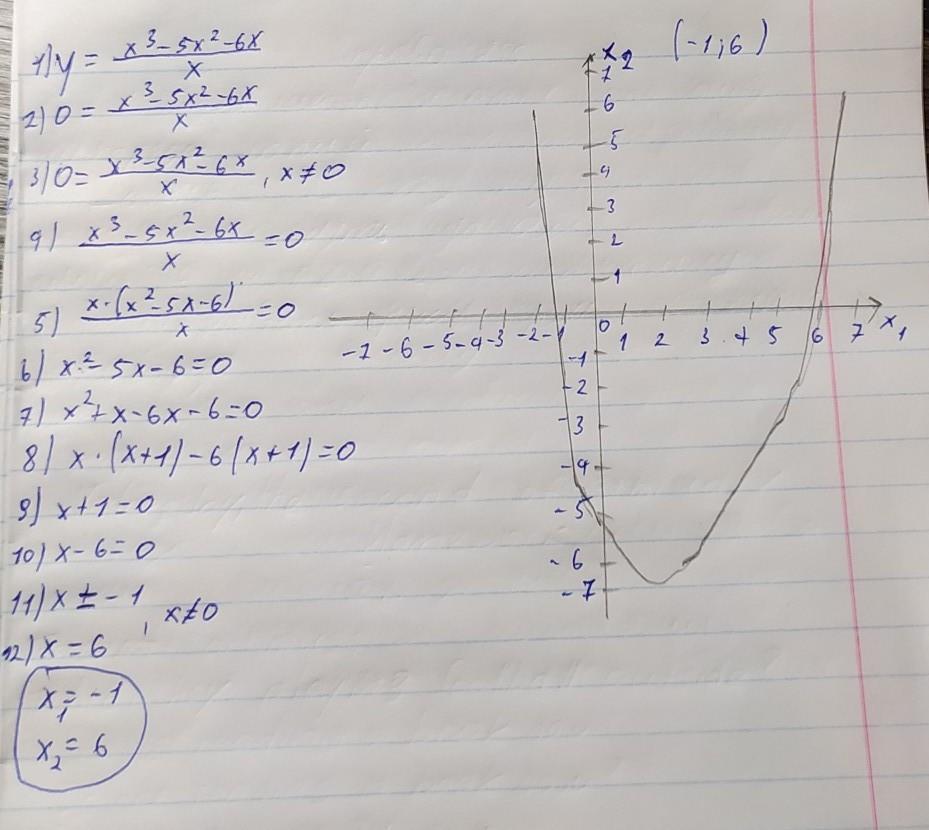 1) y = (x³ - 5x² - 6x)/x
2) 0 = (x³ - 5x² - 6x)/x
3) 0 = (x³ - 5x² - 6x)/x , x ≠ 0
4) (x³ - 5x² - 6x)/x = 0
5) (x · (x² - 5x - 6))/x = 0
6) x² - 5x - 6 = 0
7) x² + x - 6x - 6 = 0
8) x · (x+1) - 6(x+1) = 0
9) x + 1 = 0
10) x - 6 = 0
11) x = - 1
, x ≠ 0
12) x = 6
x₁ = - 1
x₂ = 6
x₂ (-1; 6)
7
6
5
4
3
2
1
-7 -6 -5 -4 -3 -2 -1 0 1 2 3 4 5 6 7 x₁
-1
-2
-3
-4
-5
-6
-7